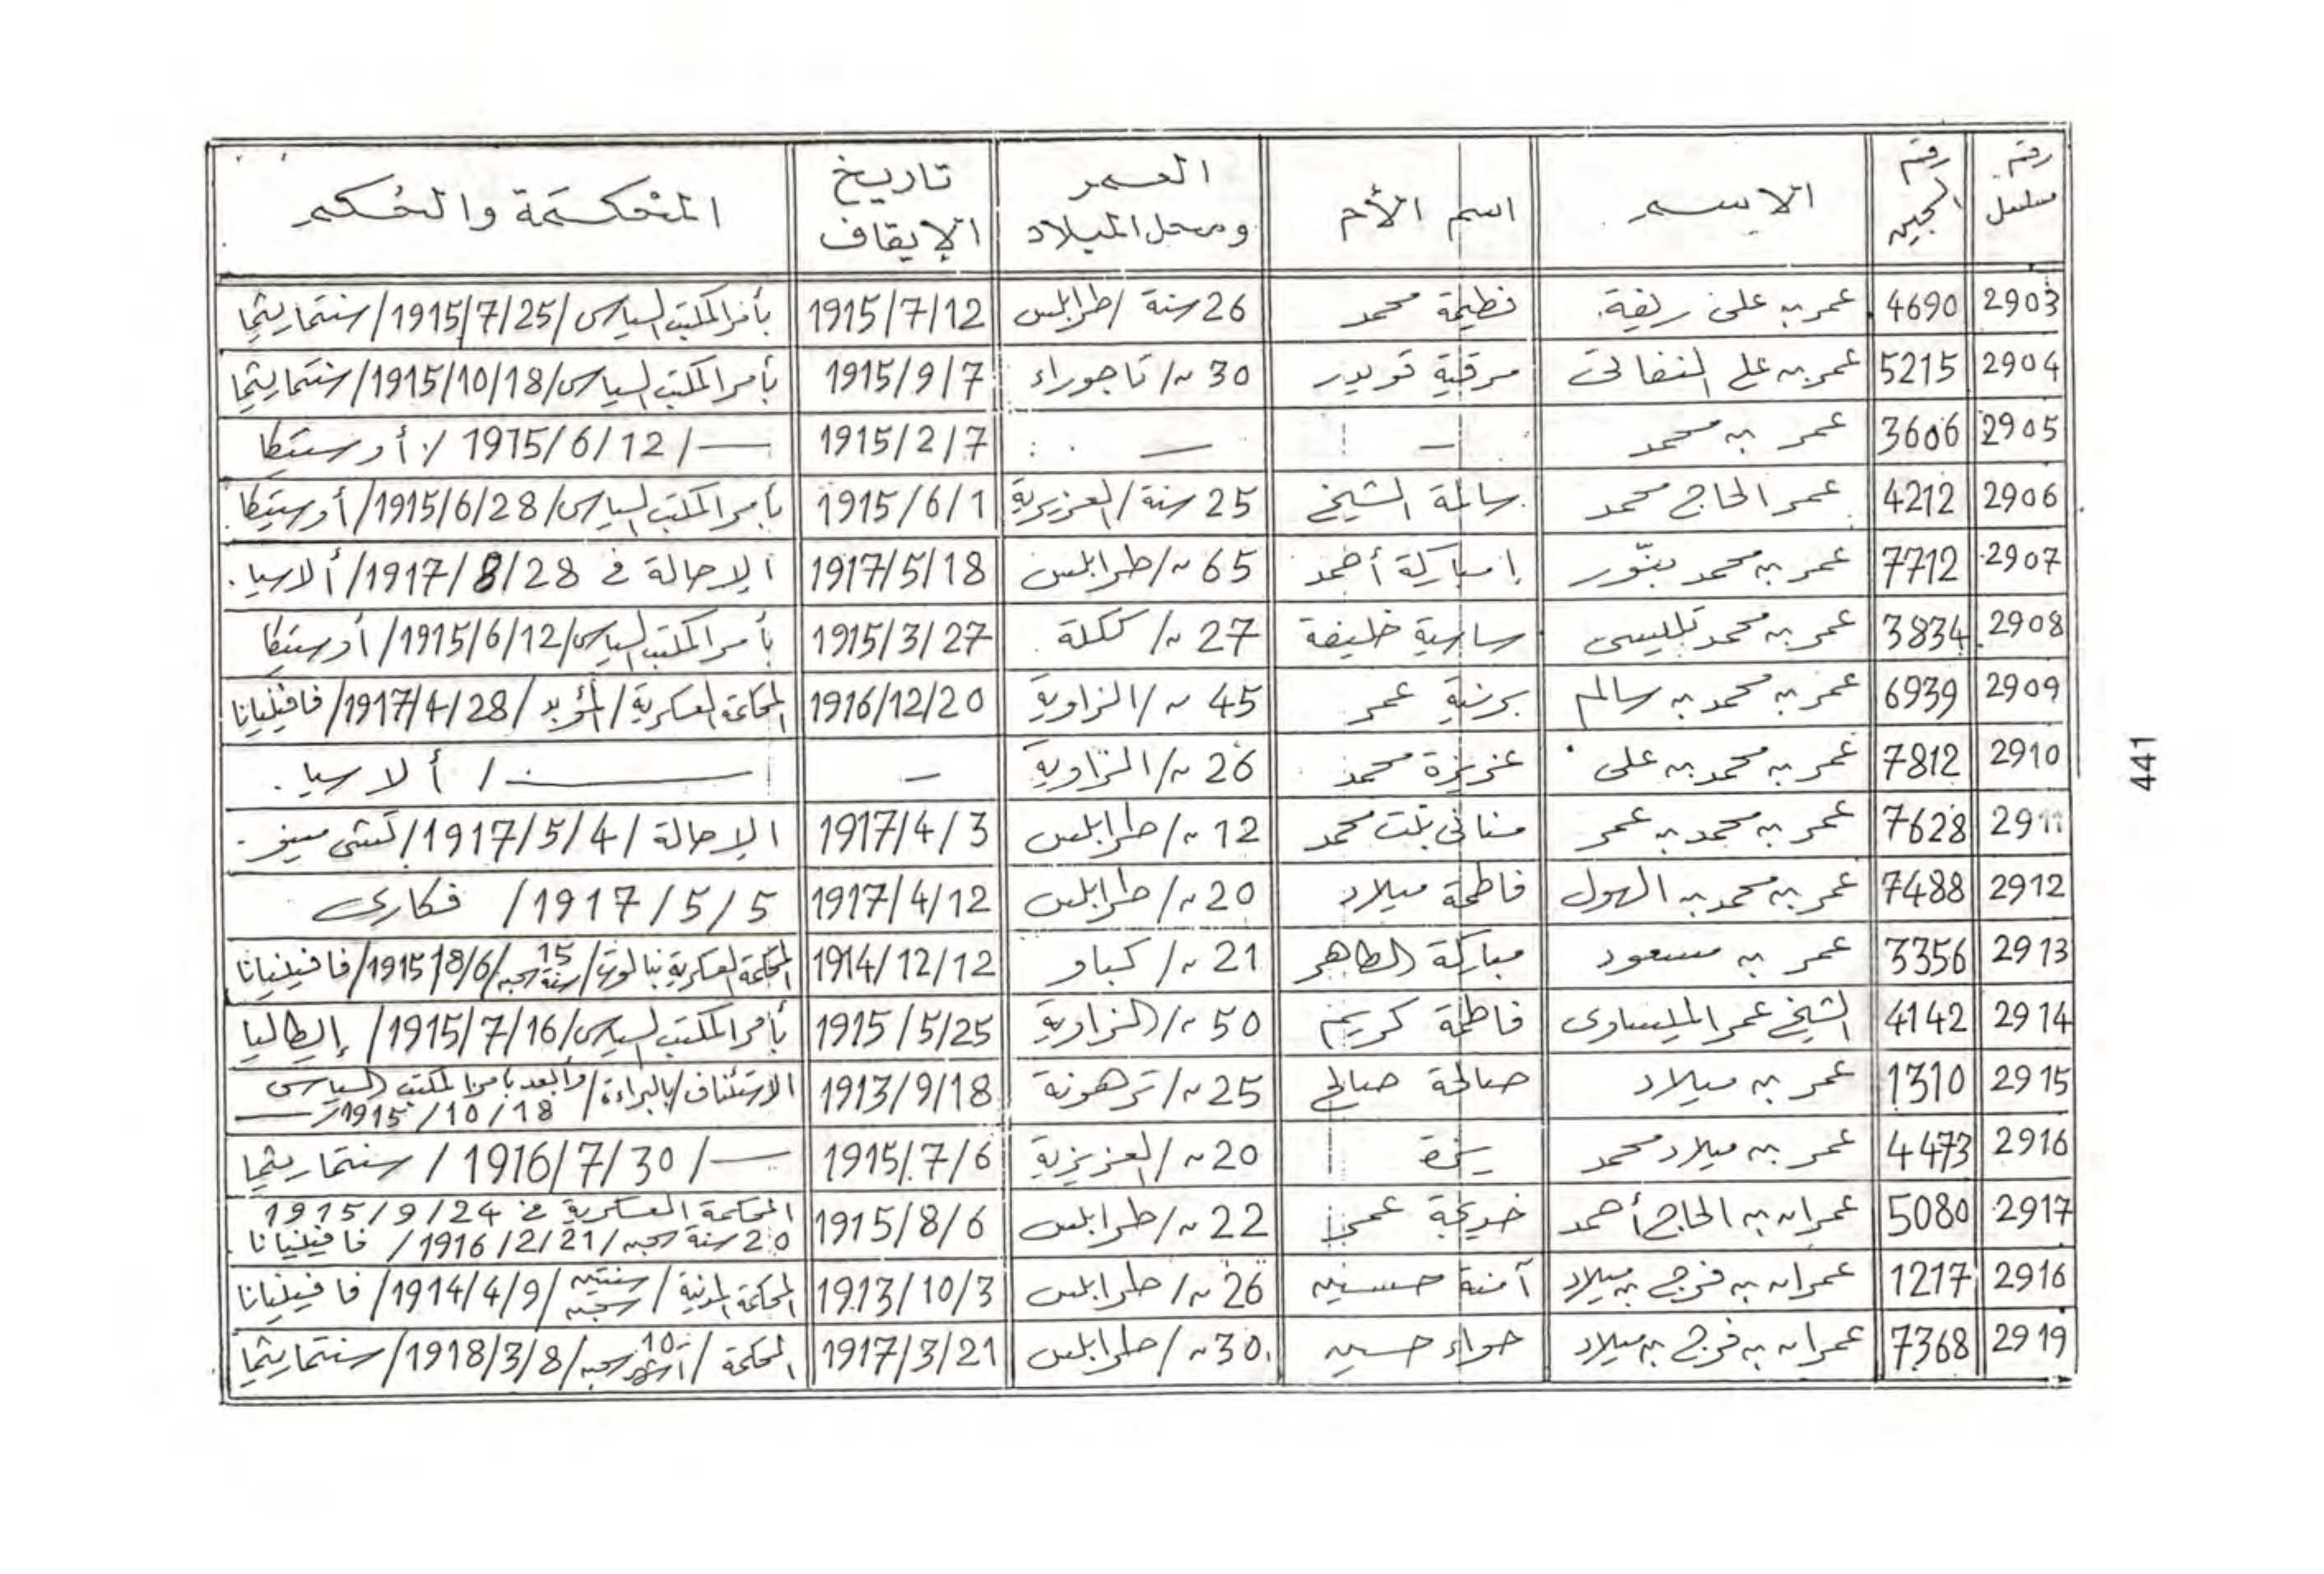 رقم مسلسل | رقم السجين | الاسم | اسم الأم | العمر ومحل الميلاد | تاريخ الإيقاف | المحكمة والحكم
2903 | 4690 | عمر بن على ريفية | نطيمة محمد | 26 سنة / طرابلس | 1915/7/12 | بأمر المكتب السياسى / 1915/7/25 / سنتماريثما
2904 | 5215 | عمر بن على النفاتى | مرقية قويدر | 30 ~ / تاجوراء | 1915/9/7 | بأمر المكتب السياسى / 1915/10/18 / سنتماريثما
2905 | 3606 | عمر بن محمد | — | — | 1915/2/7 | — / 1915/6/12 / أوستيكا
2906 | 4212 | عمر الحاج محمد | سالمة الشيخ | 25 سنة / العزيزية | 1915/6/1 | بأمر المكتب السياسى / 1915/6/28 / أوستيكا
2907 | 7712 | عمر بن محمد بنّور | إمباركة أحمد | 65 ~ / طرابلس | 1917/5/18 | الإحالة فى 1917/8/28 / ألاسيا
2908 | 3834 | عمر بن محمد تليسى | سارية خليفة | 27 ~ / ككلة | 1915/3/27 | بأمر المكتب السياسى / 1915/6/12 / أوستيكا
2909 | 6939 | عمر بن محمد بن سالم | برنية عمر | 45 ~ / الزاوية | 1916/12/20 | المحكمة العسكرية / المؤبد / 1917/4/28 / فافينيانا
2910 | 7812 | عمر بن محمد بن على | عزيزة محمد | 26 ~ / الزاوية | — | — / ألاسيا
2911 | 7628 | عمر بن محمد بن عمر | منانى بنت محمد | 12 ~ / طرابلس | 1917/4/3 | الإحالة / 1917/5/4 /
2912 | 7488 | عمر بن محمد بن الهول | فاطمة ميلاد | 20 ~ / طرابلس | 1917/4/12 | 1917/5/5 / فكارى
2913 | 3356 | عمر بن مسعود | مباركة الطاهر | 21 ~ / كباو | 1914/12/12 | المحكمة العسكرية بنالوت / 15 سنة سجن / 1915/8/6 / فافينيانا
2914 | 4142 | الشيخ عمر الميساوى | فاطمة كريم | 50 ~ / الزاوية | 1915/5/25 | بأمر المكتب السياسى / 1915/7/16 / إيطاليا
2915 | 1310 | عمر بن ميلاد | صالحة صالح | 25 ~ / ترهونة | 1913/9/18 | الاستئناف / بالبراءة / وأبعد بأمر المكتب السياسى 1915/10/18 —
2916 | 4473 | عمر بن ميلاد محمد | يزة | 20 ~ / العزيزية | 1915/7/6 | — / 1916/7/30 / سنتماريثما
2917 | 5080 | عمران بن الحاج أحمد | خديجة عمر | 22 ~ / طرابلس | 1915/8/6 | المحكمة العسكرية فى 1915/9/24 20 سنة سجن / 1916/2/21 / فافينيانا
2916 | 1217 | عمران بن فرج بن ميلاد | آمنة حسنين | 26 ~ / طرابلس | 1913/10/3 | المحكمة المدنية / سنتين سجن / 1914/4/9 / فافينيانا
2919 | 7368 | عمران بن فرج بن ميلاد | حواء حسين | 30 ~ / طرابلس | 1917/3/21 | المحكمة / 10 أشهر سجن / 1918/3/8 / سنتماريثما
441